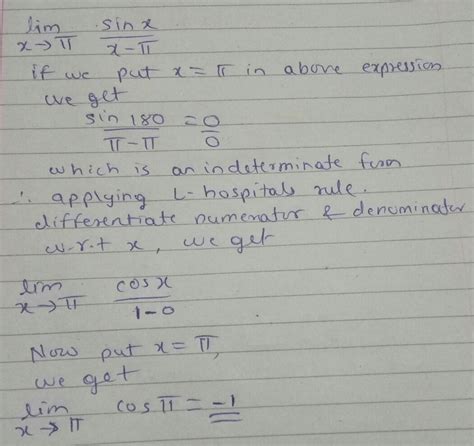 lim sin x
x→π x-π
if we put x = π in above expression
we get
sin 180 = 0
π-π 0
which is an indeterminate form
∴ applying L-hospitals rule.
differentiate numerator & denominator
w.r.t x, we get
lim cos x
x→π 1-0
Now put x = π,
we get
lim cos π = -1
x→π